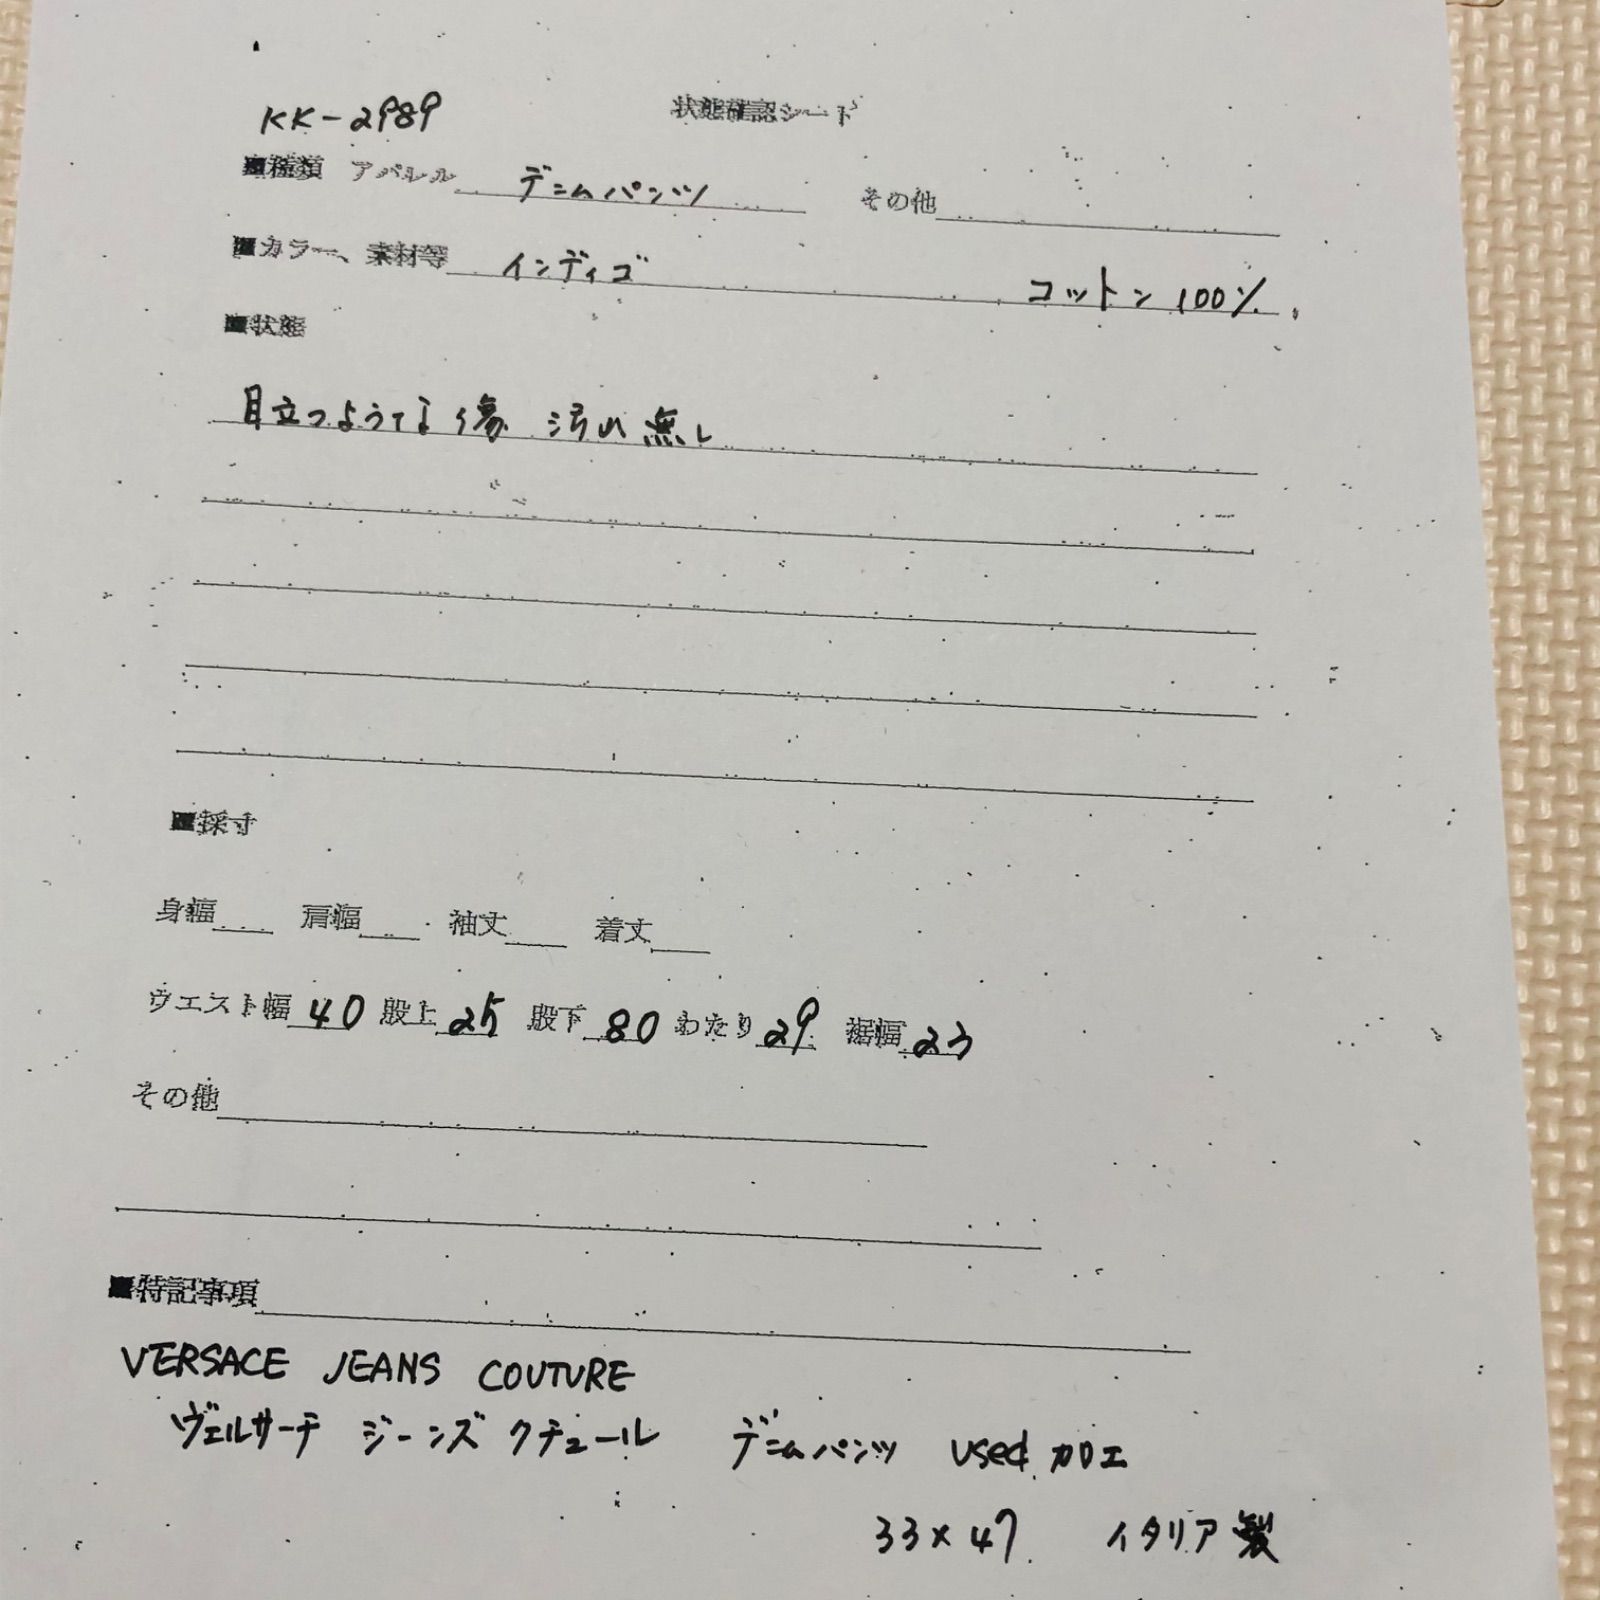 KK-2989
状態確認シート
■種類 アパレル デニムパンツ その他
■カラー、素材等 インディゴ コットン 100%
■状態
目立つような傷 汚れ無し
■採寸
身幅 肩幅 袖丈 着丈
ウエスト幅 40 股上 25 股下 80 わたり 29 裾幅 23
その他
■特記事項
VERSACE JEANS COUTURE
ヴェルサーチ ジーンズ クチュール デニムパンツ used加工
33×47 イタリア製